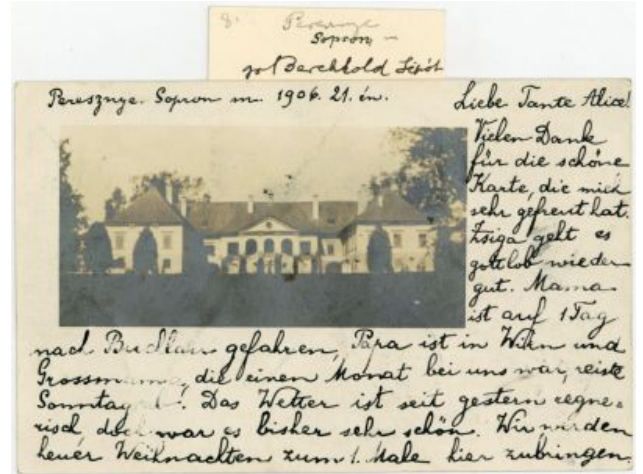 8. Peresznye
Sopron m
gr Berchtold Lipót
Peresznye. Sopron m. 1906. 21. én.
Liebe Tante Alice!
Vielen Dank
für die schöne
Karte, die mich
sehr gefreut hat.
Zsiga geht es
gottlob wieder
gut. Mama
ist auf 1 Tag
nach gefahren, Papa ist in Wien und
Grossmama, die einen Monat bei uns war, reiste
Sonntag Das Wetter ist seit gestern regne-
risch doch war es bisher sehr schön. Wir werden
heuer Weihnachten zum 1. Male hier zubringen.